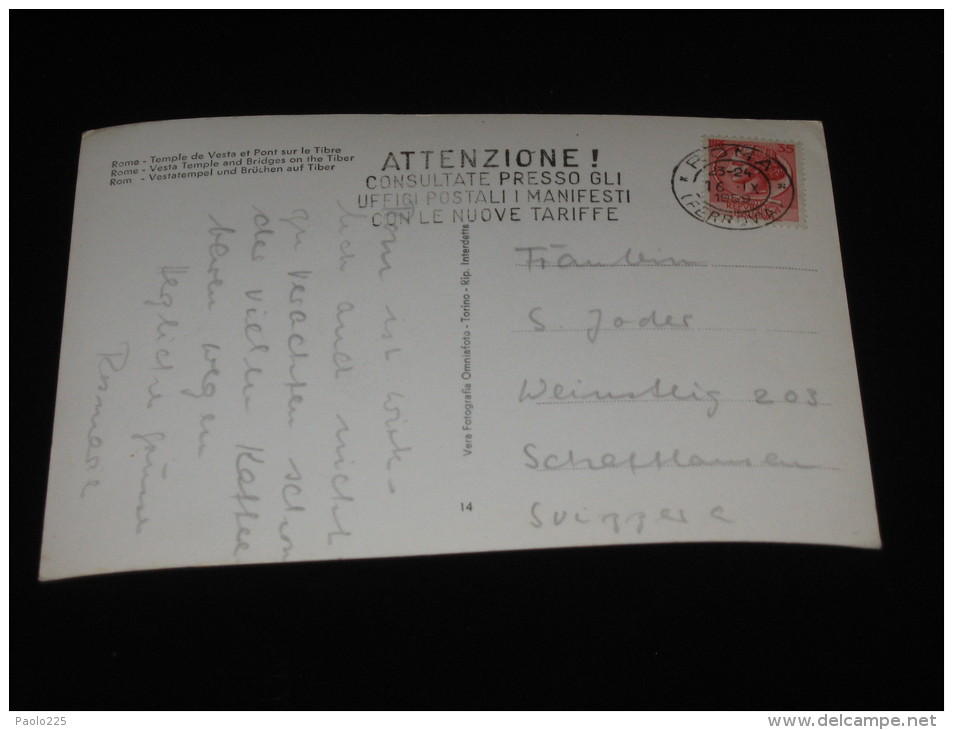 Rome - Temple de Vesta et Pont sur le Tibre
Rome - Vesta Temple and Bridges on the Tiber
Rom - Vestatempel und Brüchen auf Tiber
ATTENZIONE!
CONSULTATE PRESSO GLI
UFFICI POSTALI I MANIFESTI
CON LE NUOVE TARIFFE
ROMA
23-24
16 IX
(FERROVIA)
35
Rom ist wirk-
lich auch nicht
zu verachten schon
der vielen Kaffee
baren wegen
Herzliche Grüsse
Rosmarie
Vera Fotografia Omniafoto - Torino - Rip. Interdetta
14
Fräulein
S. Joder
Weinsteig 203
Schaffhausen
Svizzera
Paolo225
www.delcampe.net